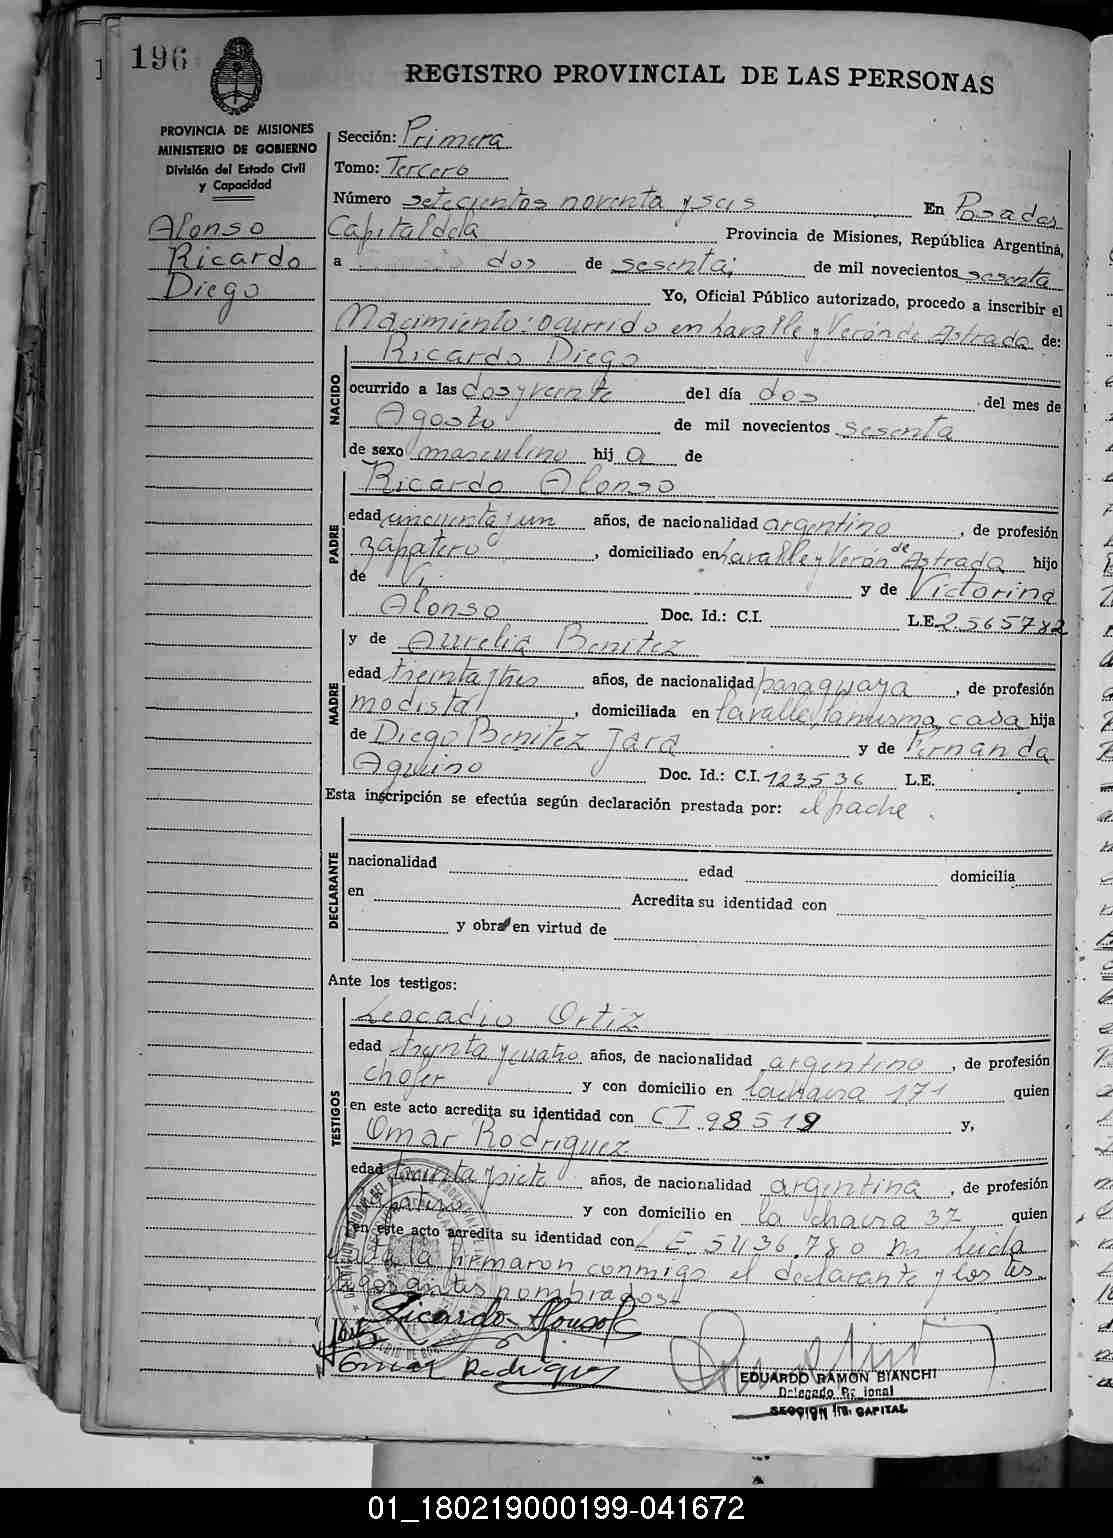 196
REGISTRO PROVINCIAL DE LAS PERSONAS
PROVINCIA DE MISIONES
MINISTERIO DE GOBIERNO
División del Estado Civil
y Capacidad
Alonso
Ricardo
Diego
Sección: Primera
Tomo: Tercero
Número setecientos noventa y seis En Posadas
Capital de la Provincia de Misiones, República Argentina,
a dos de sesenta; de mil novecientos sesenta
Yo, Oficial Público autorizado, procedo a inscribir el
Nacimiento: ocurrido en Lavalle y Verón de Astrada de:
NACIDO
Ricardo Diego
ocurrido a las dos y veinte del día dos del mes de
Agosto de mil novecientos sesenta
de sexo masculino hij a de
PADRE
Ricardo Alonso
edad cincuenta y un años, de nacionalidad argentino, de profesión
zapatero, domiciliado en Lavalle y Verón de Astrada hijo
de Vi y de Victorina
Alonso Doc. Id.: C.I. L.E. 2.565782
MADRE
y de Aurelia Benitez
edad treinta y tres años, de nacionalidad paraguaya, de profesión
modista, domiciliada en Lavalle, la misma casa hija
de Diego Benitez Jara y de Fernanda
Aquino Doc. Id.: C.I. 123536 L.E.
Esta inscripción se efectúa según declaración prestada por: el padre.
DECLARANTE
nacionalidad edad domicilia
en Acredita su identidad con
y obra en virtud de
Ante los testigos:
TESTIGOS
Leocadio Ortiz
edad treinta y cuatro años, de nacionalidad argentino, de profesión
chofer y con domicilio en la chacra 171 quien
en este acto acredita su identidad con CI 98519 y,
Omar Rodriguez
edad treinta y siete años, de nacionalidad argentina, de profesión
y con domicilio en la chacra 37 quien
en este acto acredita su identidad con L E. 5.436.780 leida
la firmaron conmigo el declarante y los tes
tigos antes nombrados-
Ricardo Alonso
Omar Rodriguez
EDUARDO RAMON BIANCHI
Delegado Re ional
SECCION 1ra. CAPITAL
01_180219000199-041672